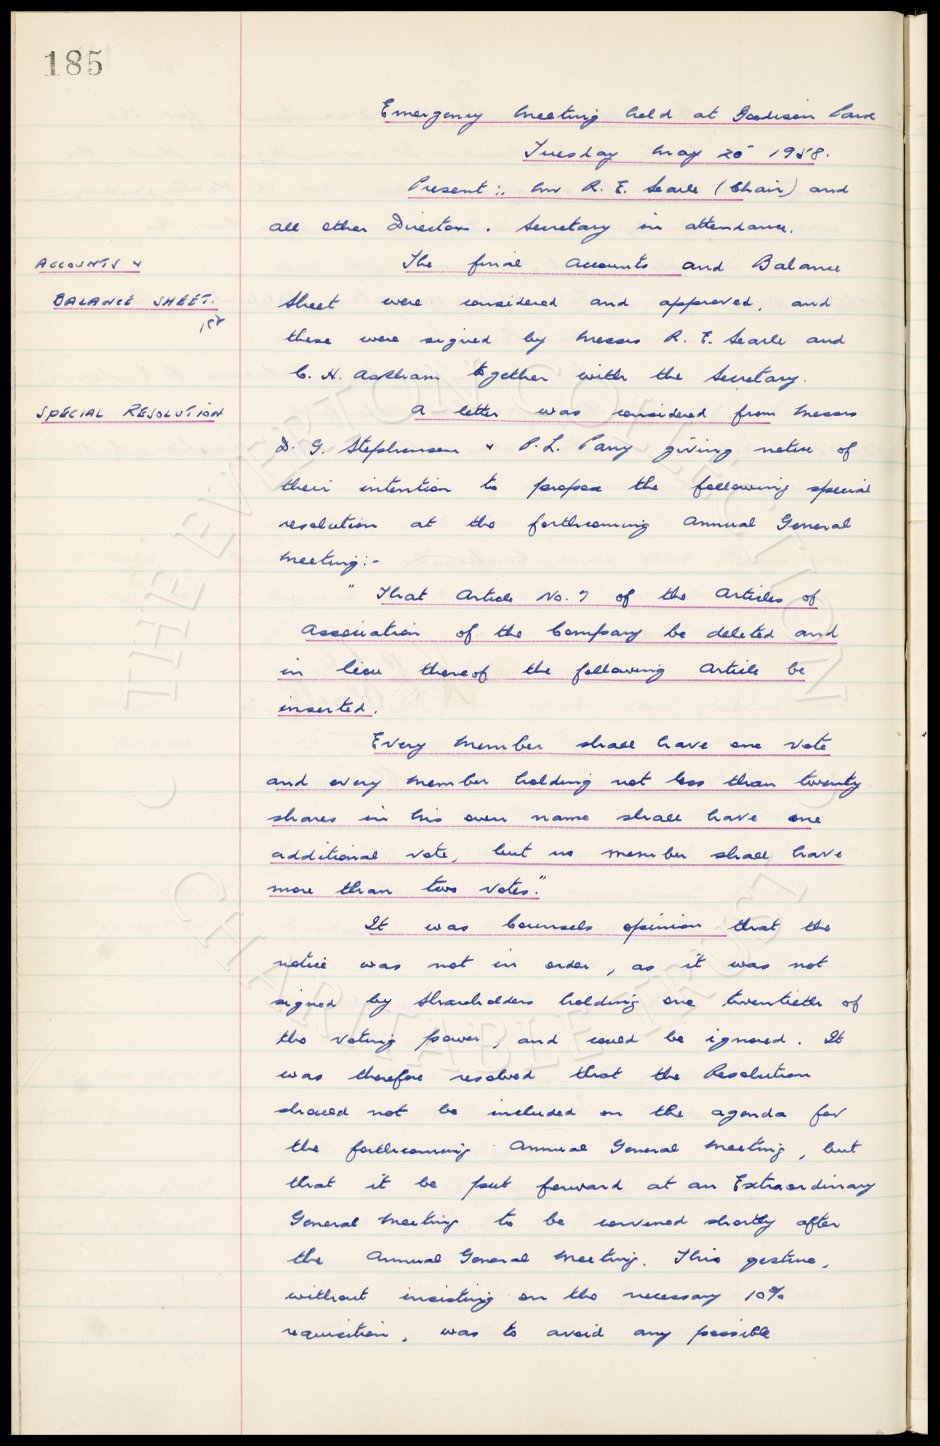 185
Emergency Meeting held at Goodison Park
Tuesday May 20 1958.
Present:. Mr R. E. Searle (Chair) and
all other Directors. Secretary in attendance.
ACCOUNTS &
The final accounts and Balance
BALANCE SHEET.
Sheet were considered and approved, and
these were signed by Messrs R. E. Searle and
C. H. Askham together with the Secretary.
SPECIAL RESOLUTION
A letter was considered from Messrs
D. G. Stephenson & P. L. Parry giving notice of
their intention to propose the following special
resolution at the forthcoming Annual General
Meeting:-
"That Article No. 7 of the Articles of
Association of the Company be deleted and
in lieu thereof the following Article be
inserted.
Every Member shall have one vote
and every Member holding not less than twenty
shares in his own name shall have one
additional vote, but no member shall have
more than two votes."
It was Counsels opinion that the
notice was not in order, as it was not
signed by Shareholders holding one twentieth of
the voting power, and could be ignored. It
was therefore resolved that the Resolution
should not be included on the agenda for
the forthcoming Annual General Meeting, but
that it be put forward at an Extraordinary
General Meeting to be convened shortly after
the Annual General Meeting. This gesture,
without insisting on the necessary 10%
requisition, was to avoid any possible
THE EVERTON COLLECTION
CHARITABLE TRUST